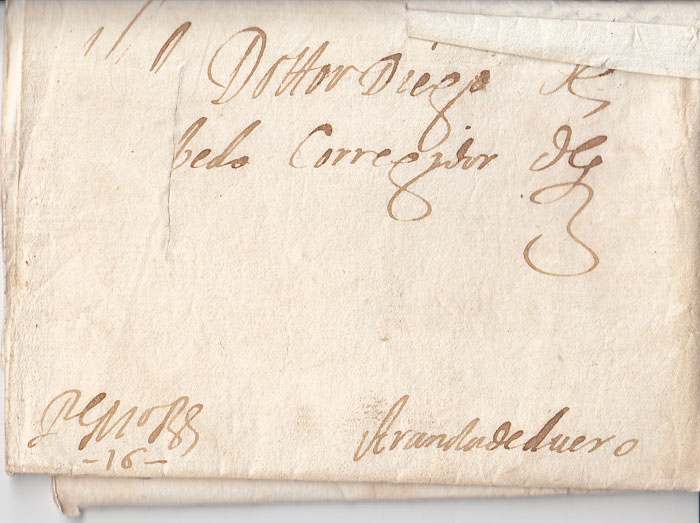 Dottor Diego de
bedo Corregidor de
Aranda de duero
-16-